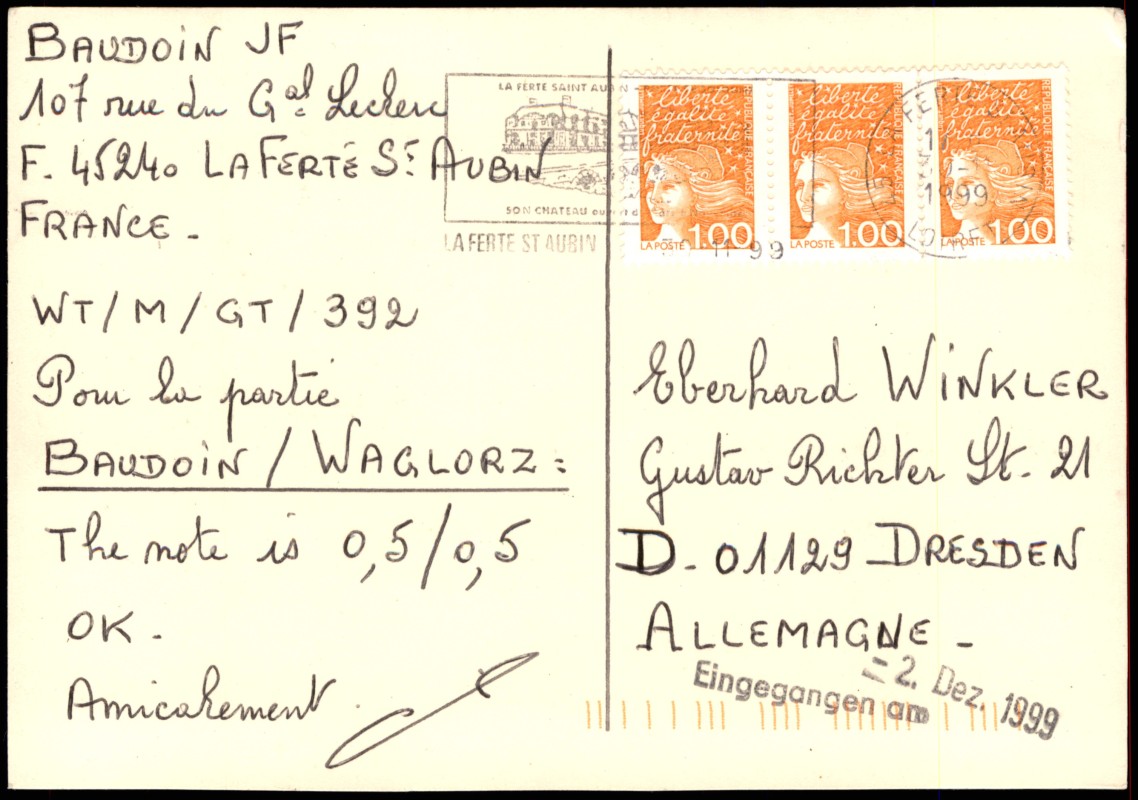 BAUDOIN JF
107 rue du Gal. Leclerc
F. 45240 LA FERTÉ St. AUBIN
FRANCE -
WT/M/GT/392
Pour la partie
BAUDOIN / WAGLORZ :
The note is 0,5/0,5
OK -
Amicalement
LA FERTE SAINT AUBIN
SON CHATEAU
LA FERTE ST AUBIN
11 99
liberté
égalité
fraternité
RÉPUBLIQUE FRANÇAISE
LA POSTE 1.00
liberté
égalité
fraternité
RÉPUBLIQUE FRANÇAISE
LA POSTE 1.00
liberté
égalité
fraternité
RÉPUBLIQUE FRANÇAISE
LA POSTE 1.00
1999
Eberhard WINKLER
Gustav Richter St. 21
D. 01129 DRESDEN
ALLEMAGNE -
Eingegangen am
= 2. Dez. 1999